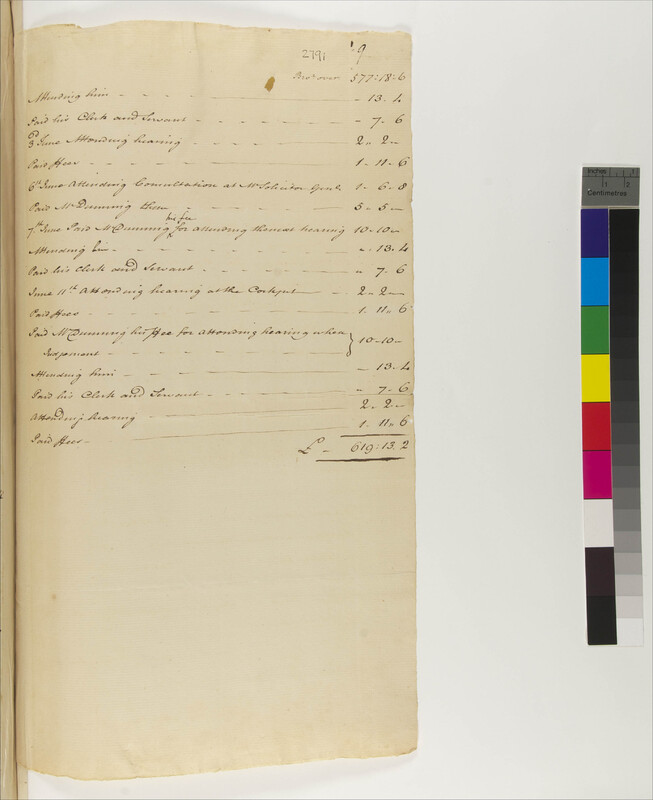 2791
9
Bro.t over 577: 18: 6
Attending him - - - - - 13. 4
Paid his Clerk and Servant - - 7. 6
3.d June Attending hearing - 2. 2 -
Paid Fees - - - - 1. 11. 6
6th June Attending Consultation at Mr Solicitor Genls. 1. 6. 8
Paid Mr Dunning then - - - - 5. 5 -
7th June Paid Mr Dunning his fee for attending the next hearing 10. 10 -
Attending him - - - - - 13. 4
Paid his Clerk and Servant - - - - 7. 6
June 11th Attending hearing at the Cockpit - 2. 2 -
Paid Fees - - - - 1. 11. 6
Paid Mr Dunning his Fee for attending hearing when
Judgement - - - - - } 10 - 10 -
Attending him - - - - - 13. 4
Paid his Clerk and Servant - - 7. 6
Attending hearing 2. 2 -
Paid Fees - 1. 11. 6
£ - 619: 13. 2
Inches
1 2
Centimetres